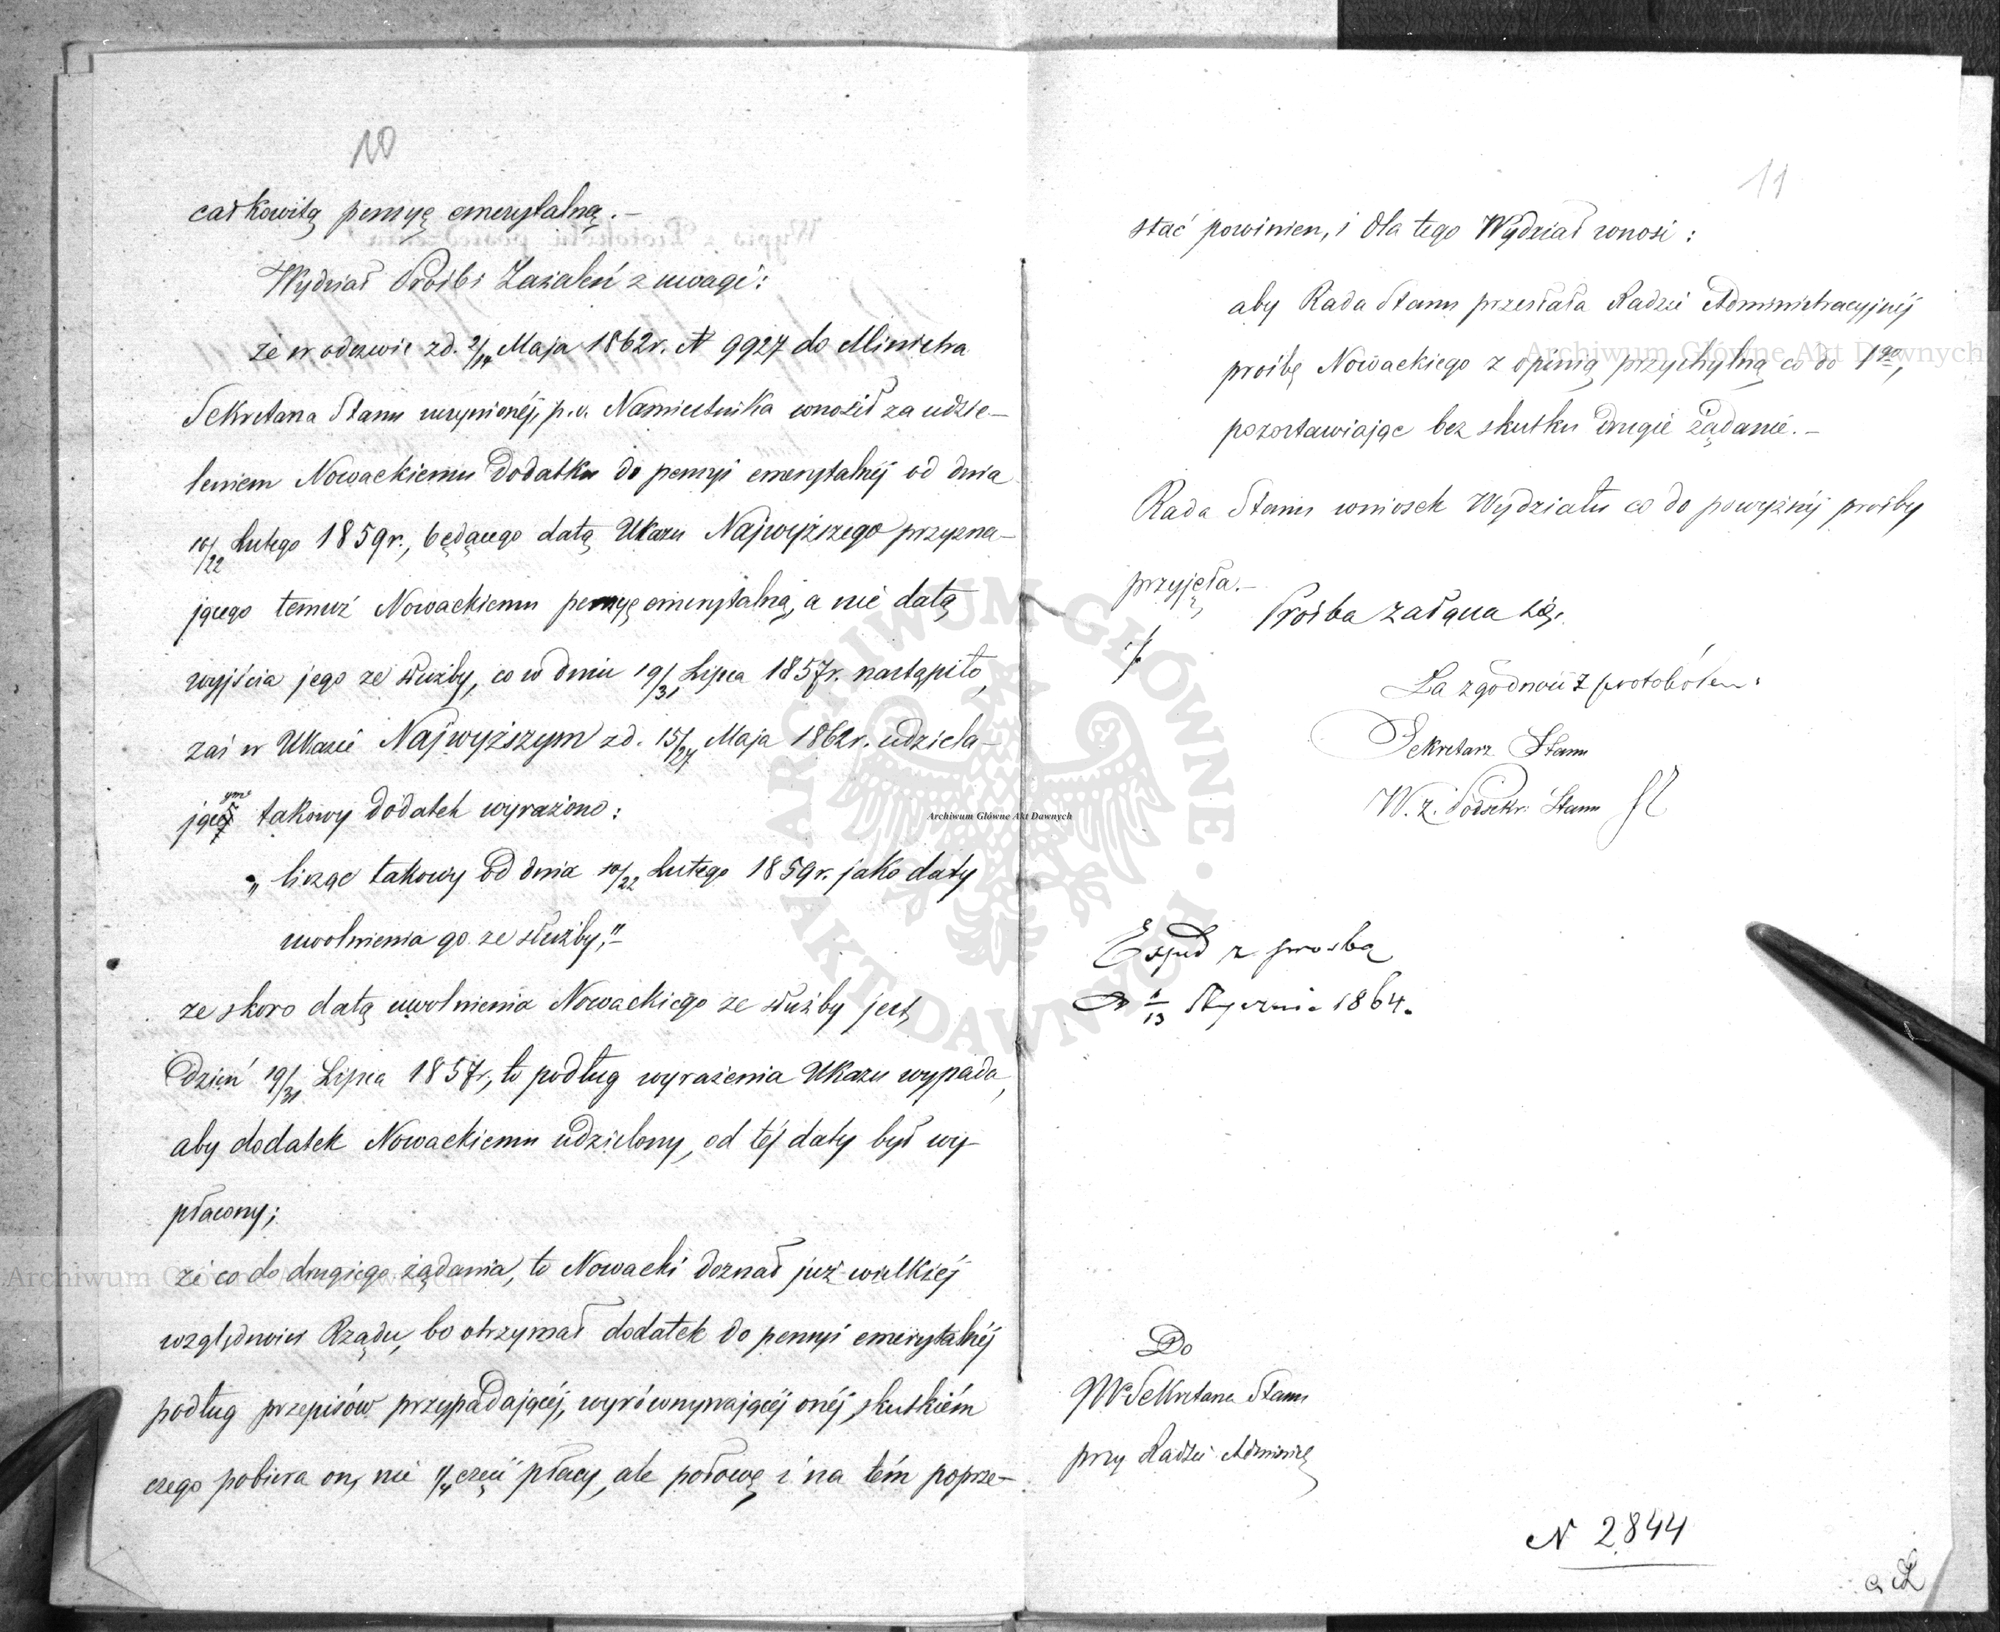 10
całkowitą pensyę emerytalną.—
Wydział Próśb i Zażaleń z uwagi:
że w odezwie z d. 2/14 Maja 1862 r. N 9927 do Ministra
Sekretarza Stanu uczynionéj, p. o. Namiestnika wnosił za udzie–
leniem Nowackiemu dodatku do pensyi emerytalnéj od dnia
10/22 Lutego 1859 r., będącego datą Ukazu Najwyższego przyzna–
jącego temuż Nowackiemu pensyę emerytalną, a nie datą
wyjścia jego ze służby, co w dniu 19/31 Lipca 1857 r. nastąpiło,
zaś w Ukazie Najwyższym z d. 15/27 Maja 1862 r. udziela–
jącym takowy dodatek wyrażono:
„ licząc takowy od dnia 10/22 Lutego 1859 r. jako daty
uwolnienia go ze służby,"–
że skoro datą uwolnienia Nowackiego ze służby jest
dzień 19/31 Lipca 1857 r., to podług wyrażenia Ukazu wypada,
aby dodatek Nowackiemu udzielony, od téj daty był wy–
płacony;
że co do drugiego żądania, to Nowacki doznał już wielkiéj
względności Rządu, bo otrzymał dodatek do pensyi emerytalnéj
podług przepisów przypadającéj, wyrównywającéj onéj, skutkiém
czego pobiera on, nie 1/4 część płacy, ale połowę i na tém poprze–
11
stać powinien, i dla tego Wydział wnosi:
aby Rada Stanu przesłała Radzie Administracyjnéj
prośbę Nowackiego z opinią przychylną co do 1go,
pozostawiając bez skutku drugie żądanie.—
Rada Stanu wniosek Wydziału co do powyższéj prośby
przyjęła.—
Prośba załącza się.
Za zgodność z protokółem:
Sekretarz Stanu
W. z. Podsekr: Stanu
Exped z prośbą
D 1/13 Stycznia 1864.
Do
JW Sekretarza Stanu
przy Radzie Administr
N 2844
Archiwum Główne Akt Dawnych
ARCHIWUM GŁÓWNE AKT DAWNYCH
Archiwum Główne Akt Dawnych
Archiwum Główne Akt Dawnych